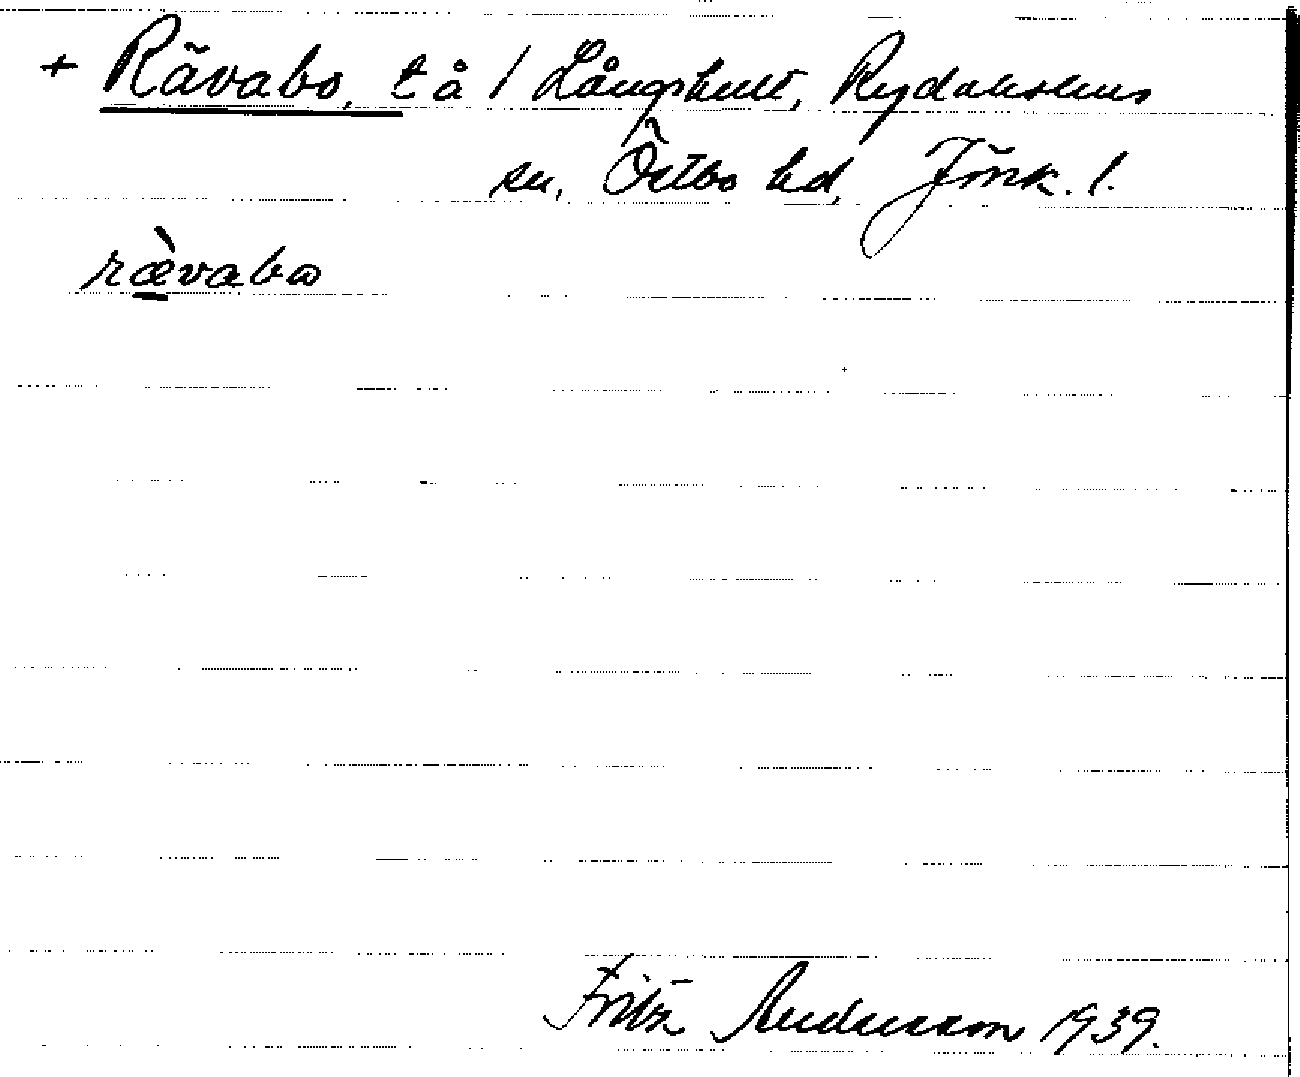 + Rävabo, t å / Långshult, Rydaholms
sn, Östbo hd, Jönk. l.
rævabω
Fritz Andersson 1939.